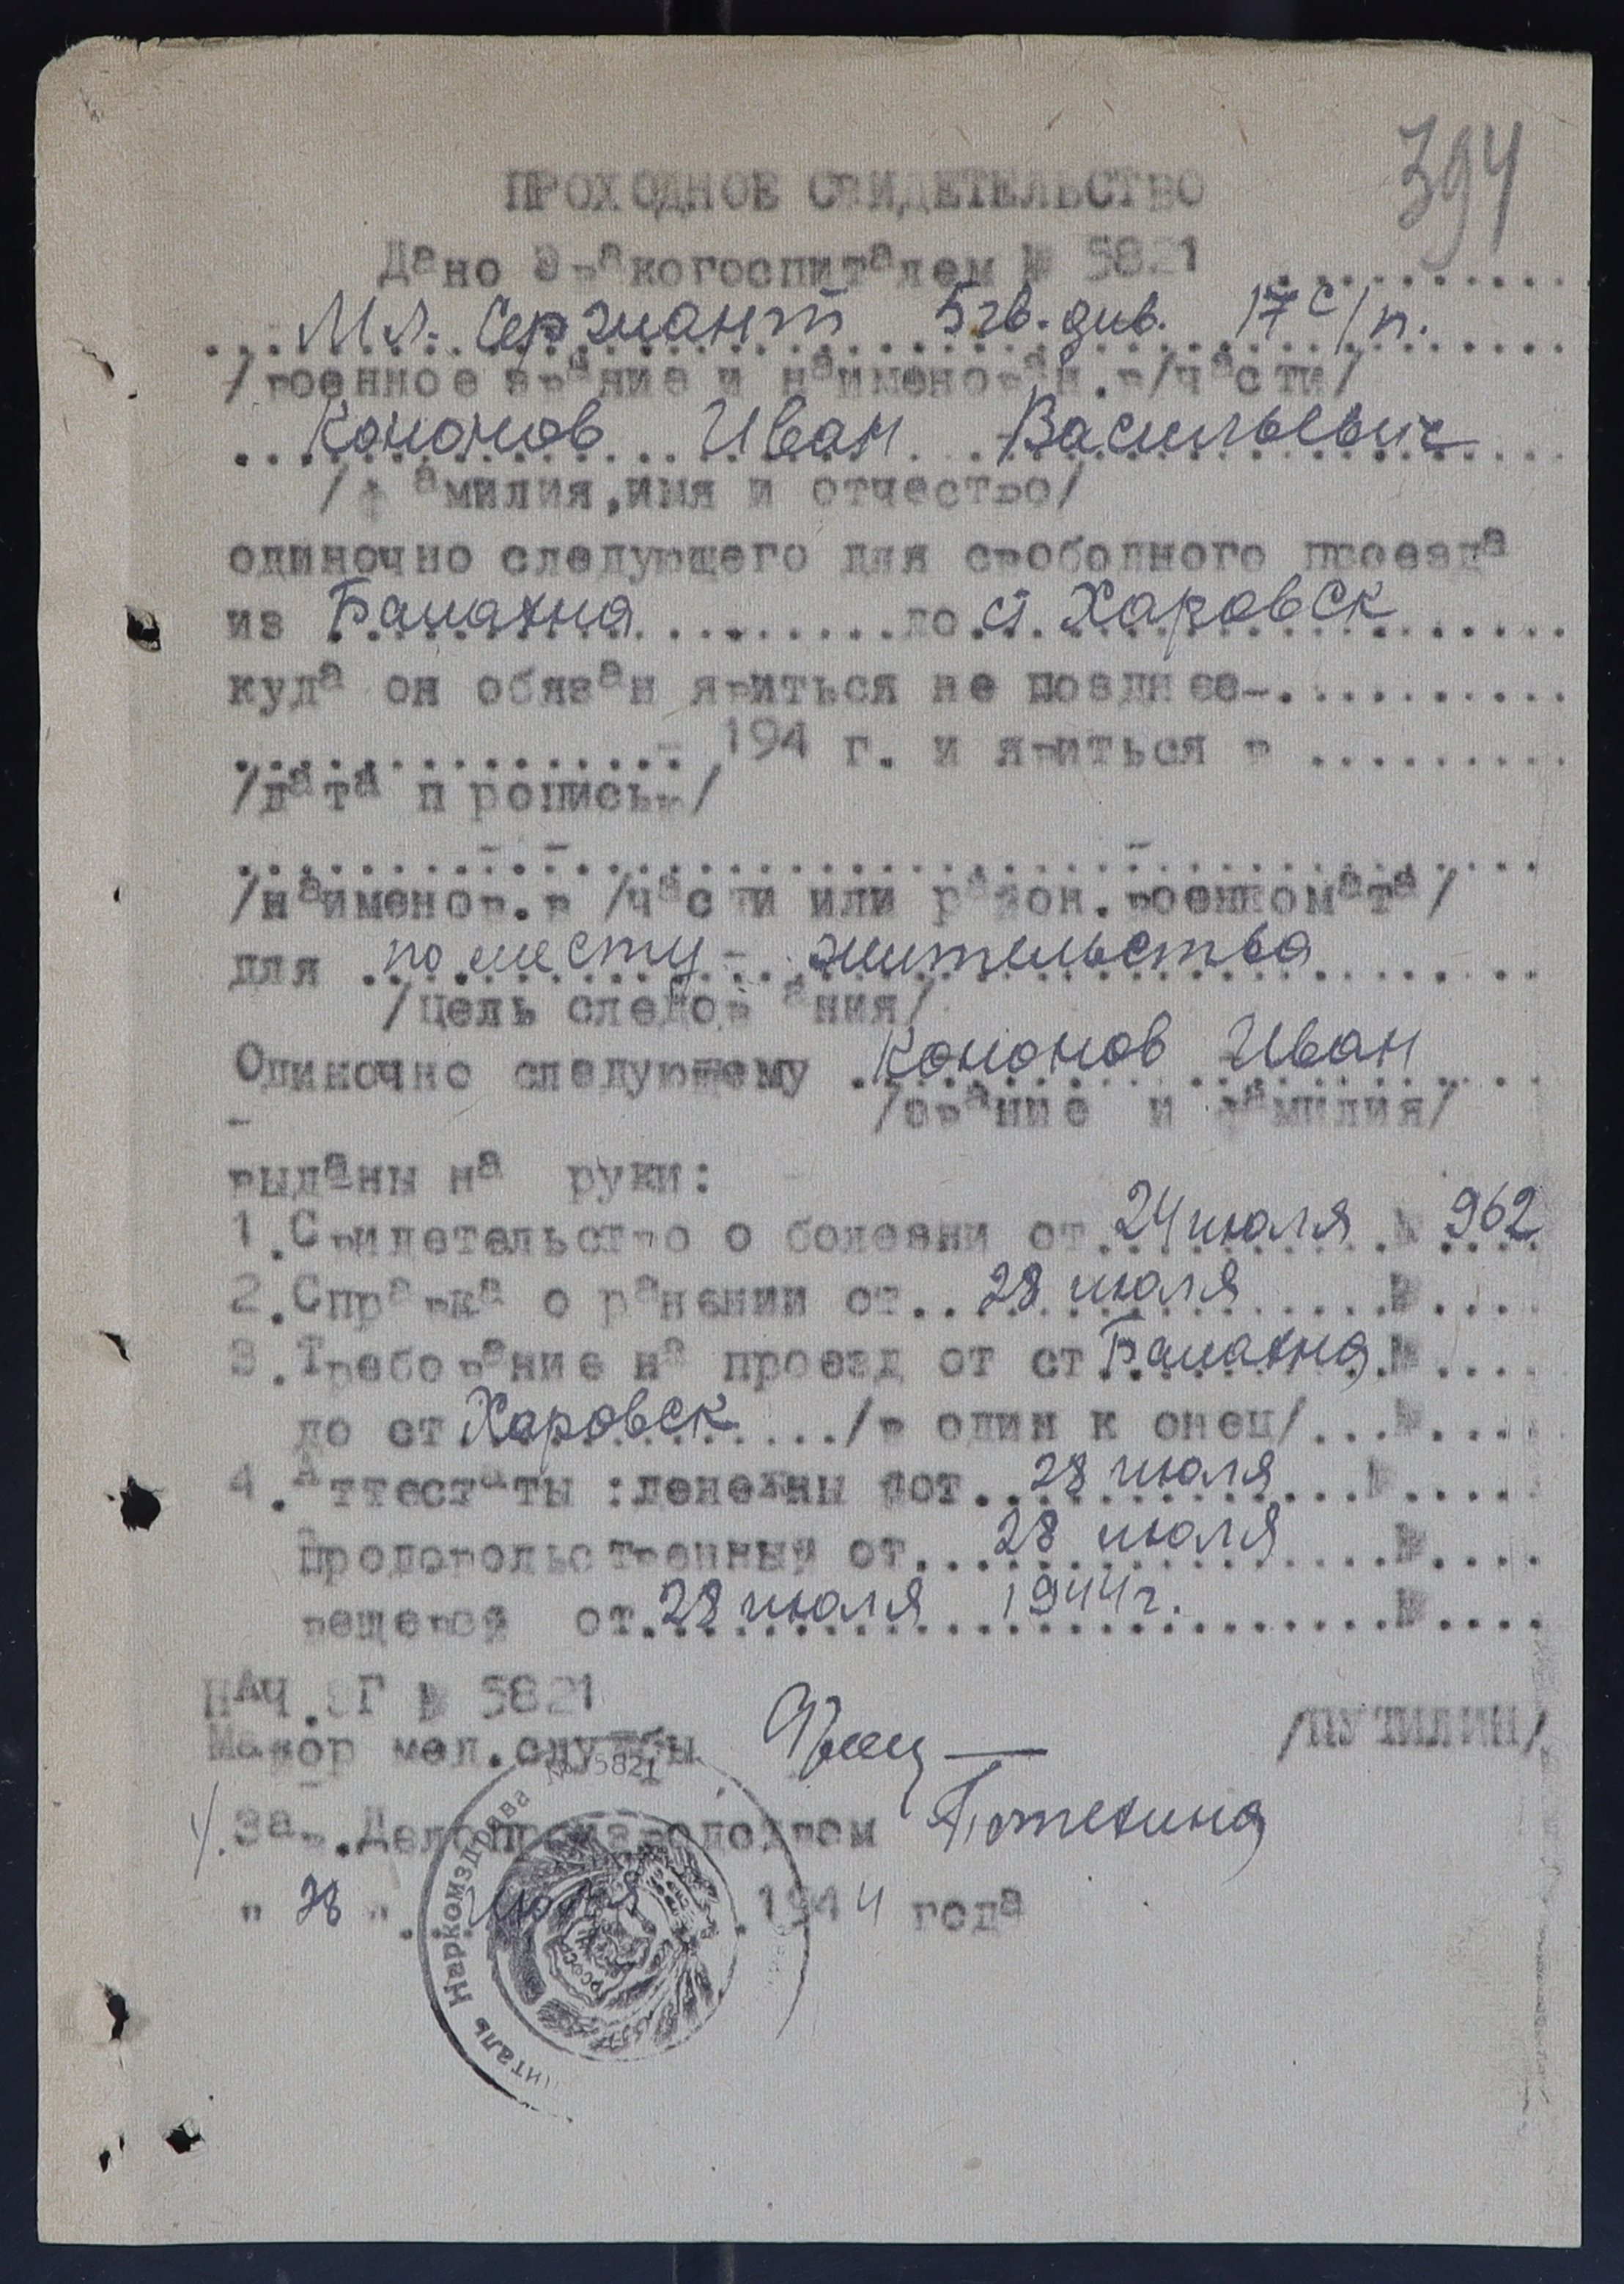 394
ПРОХОДНОЕ СВИДЕТЕЛЬСТВО
Дано Эвакогоспиталем № 5821
Мл. Сержант 5 гв. див. 17 с/п.
/военное звание и наименован.в/части/
Кононов Иван Васильевич
/фамилия,имя и отчество/
одиночно следующего для свободного проезда
из Балахна до ст. Харовск
куда он обязан явиться не позднее-
- 194 г. и явиться в
/дата прописью/
- - -
/наименов.в /части или район.военкомата/
для по месту - жительства
/цель следования/
Одиночно следующему Кононов Иван
/звание и фамилия/
-
выданы на руки:
1.Свидетельство о болезни от 24 июля № 962
2.Справка о ранении от 28 июля №
3.Требование на проезд от ст Балахна №
до ст Харовск /в один конец/ №
4.Аттестаты :денежный от 28 июля №
Продовольственный от 28 июля №
вещевой от 28 июля 1944 г. №
НАЧ.ЭГ № 5821
Майор мед.службы /ПУТИЛИН/
Зав.Делопроизводством Потехина
" 28 " июля 1944 года
Наркомздрава № 5821